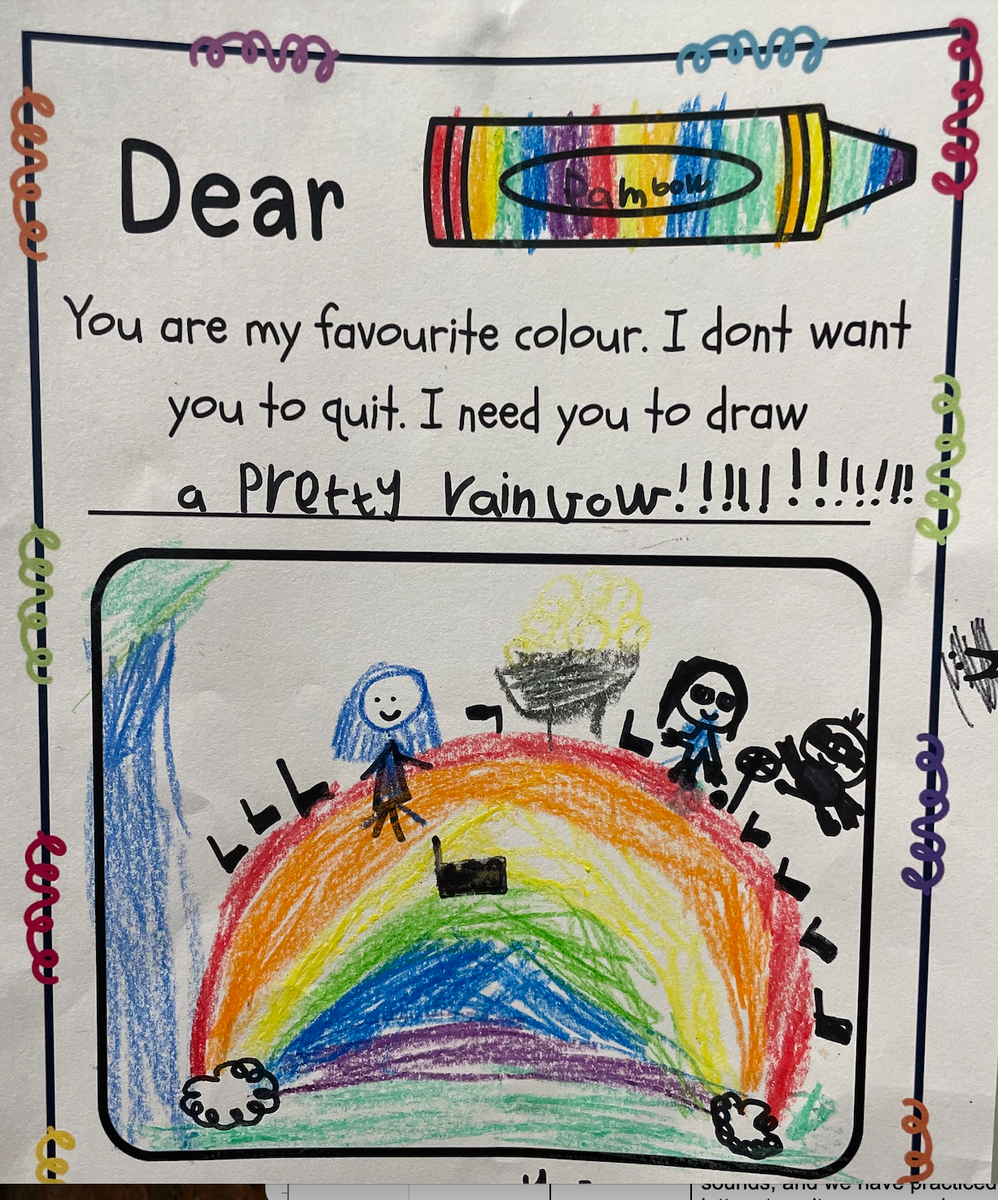 Dear Rambow
You are my favourite colour. I dont want
you to quit. I need you to draw
a pretty rainvow!!!!!!!!!!!!
sounds, and we have practiced